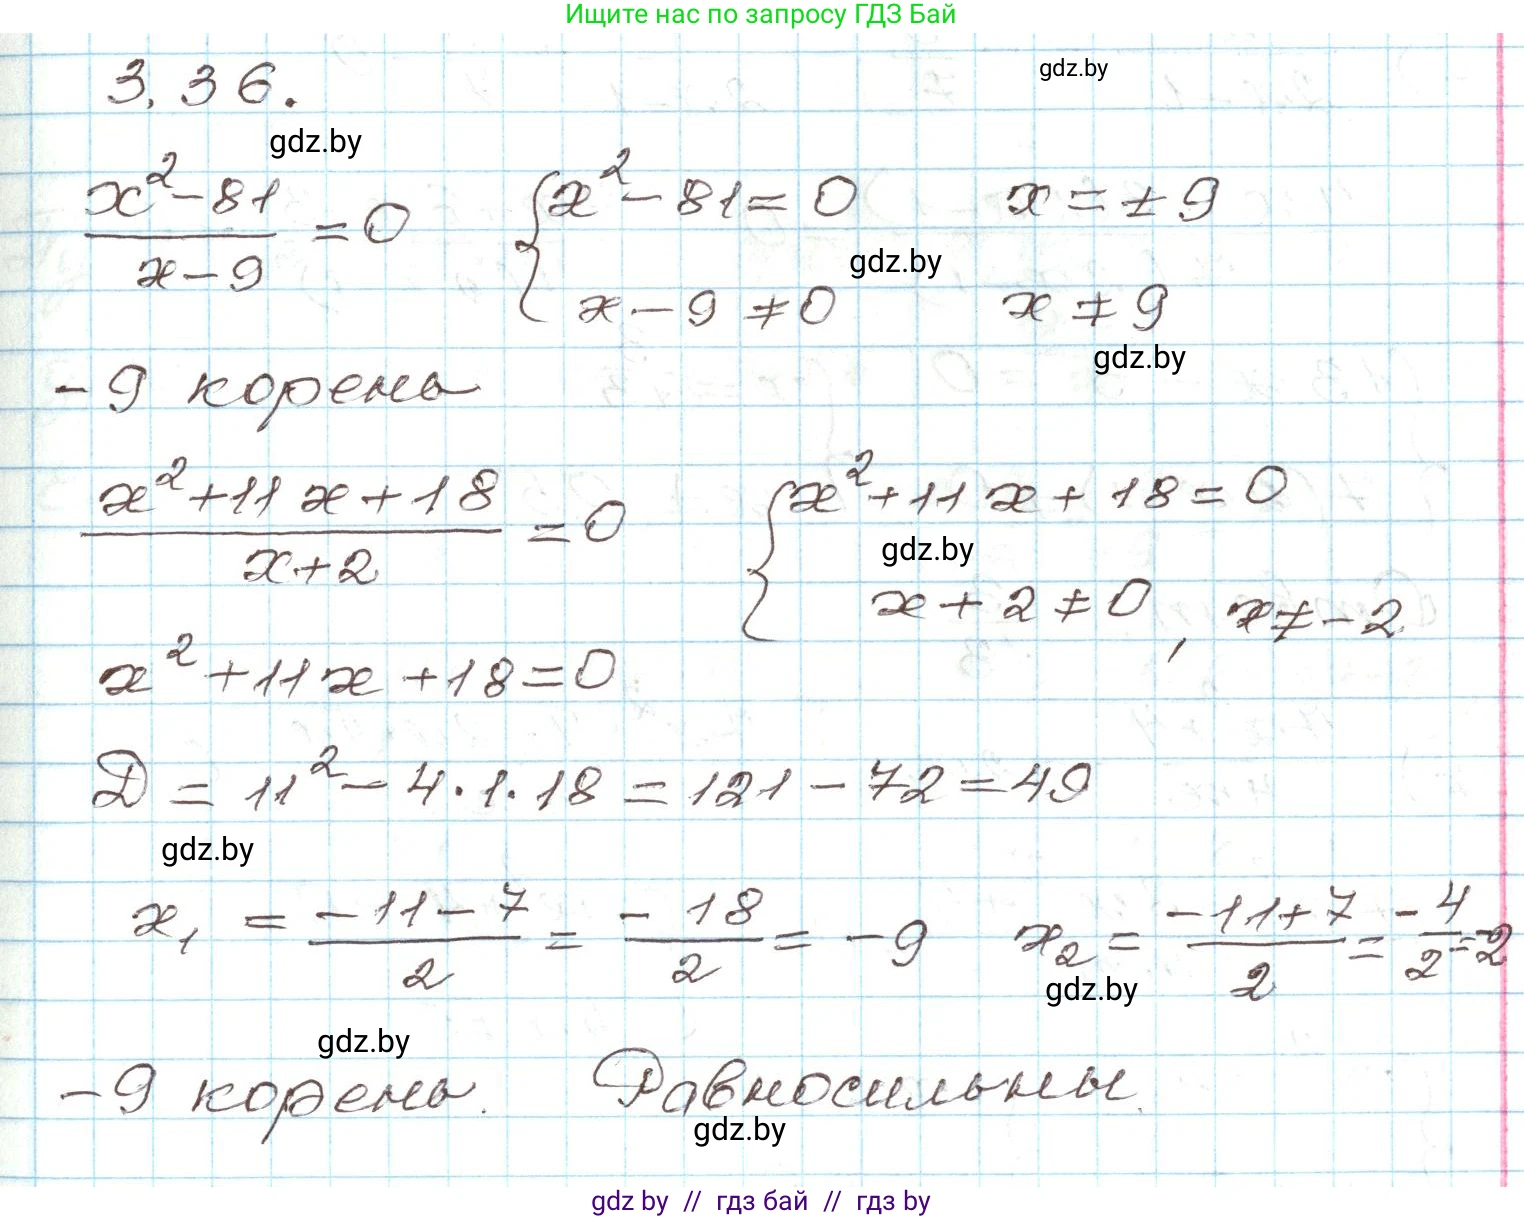 Ищите нас по запросу ГДЗ Бай
3.36.
gdz.by
gdz.by
(x² - 81)/(x - 9) = 0 { x² - 81 = 0 x = ± 9
gdz.by
x - 9 ≠ 0 x ≠ 9
gdz.by
- 9 корень
(x² + 11x + 18)/(x + 2) = 0 { x² + 11x + 18 = 0
gdz.by
x + 2 ≠ 0, x ≠ - 2
x² + 11x + 18 = 0
D = 11² - 4 · 1 · 18 = 121 - 72 = 49
gdz.by
x₁ = (-11 - 7)/2 = (-18)/2 = -9 x₂ = (-11 + 7)/2 = (-4)/2 = -2
gdz.by
gdz.by
- 9 корень. Равносильны.
gdz.by
gdz by // гдз бай // гдз by